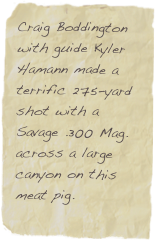 Craig Boddington
with guide Kyler
Hamann made a
terrific 275-yard
shot with a
Savage .300 Mag.
across a large
canyon on this
meat pig.